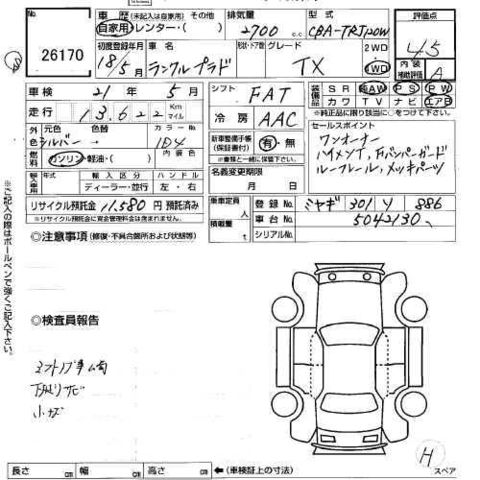 No.
26170
車歴 (未記入は自家用) その他
自家用 レンター・( )
排気量
2700 c.c
型式
CBA-TRJ120W
評価点
4.5
初度登録年月 車名
18年5月 ランクルプラド
形状・ドア数 グレード
TX
2WD
4WD
内装
補助評価
A
車検 21年 5月
シフト
FAT
装備品
SR AW PS PW
カワ TV ナビ エアB
*純正品に限り該当に○をつけて下さい
走行 13,622 Km マイル
冷房
AAC
セールスポイント
ワンオーナー
ルーフレール、メッキパーツ
外色 元色 色替 カラーNo. 内装色
シルバー→ 1D4
新車整備手帳
(保証書付)
有・無
*書類と一緒に提出
燃料 ガソリン・軽油・( )
名義変更期限
月 日
輸入車用 年式 輸入区分 ハンドル
ディーラー・並行 左・右
リサイクル預託金 11,580 円 預託済み
*リサイクル預託金に資金管理料金は含まれません。
乗車定員 人
積載量 t
登録No. ミヤギ 301 ソ 886
車台No. 5042130
シリアルNo.
◎注意事項 (修復・不具合箇所および状態等)
◎検査員報告
下廻りサビ
小キズ
※ご記入の際はボールペンで強くご記入下さい。
長さ cm 幅 cm 高さ cm ←(車検証上の寸法)
H
スペア